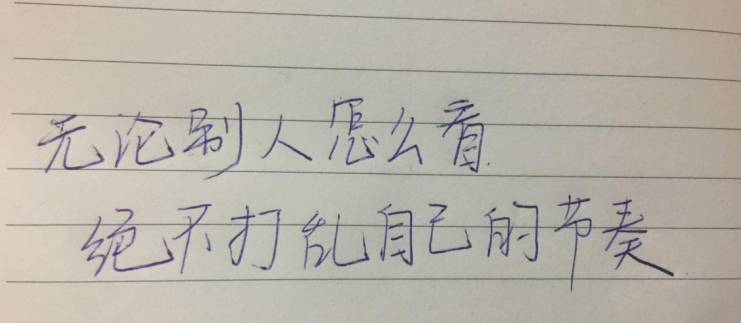 无论别人怎么看
绝不打乱自己的节奏